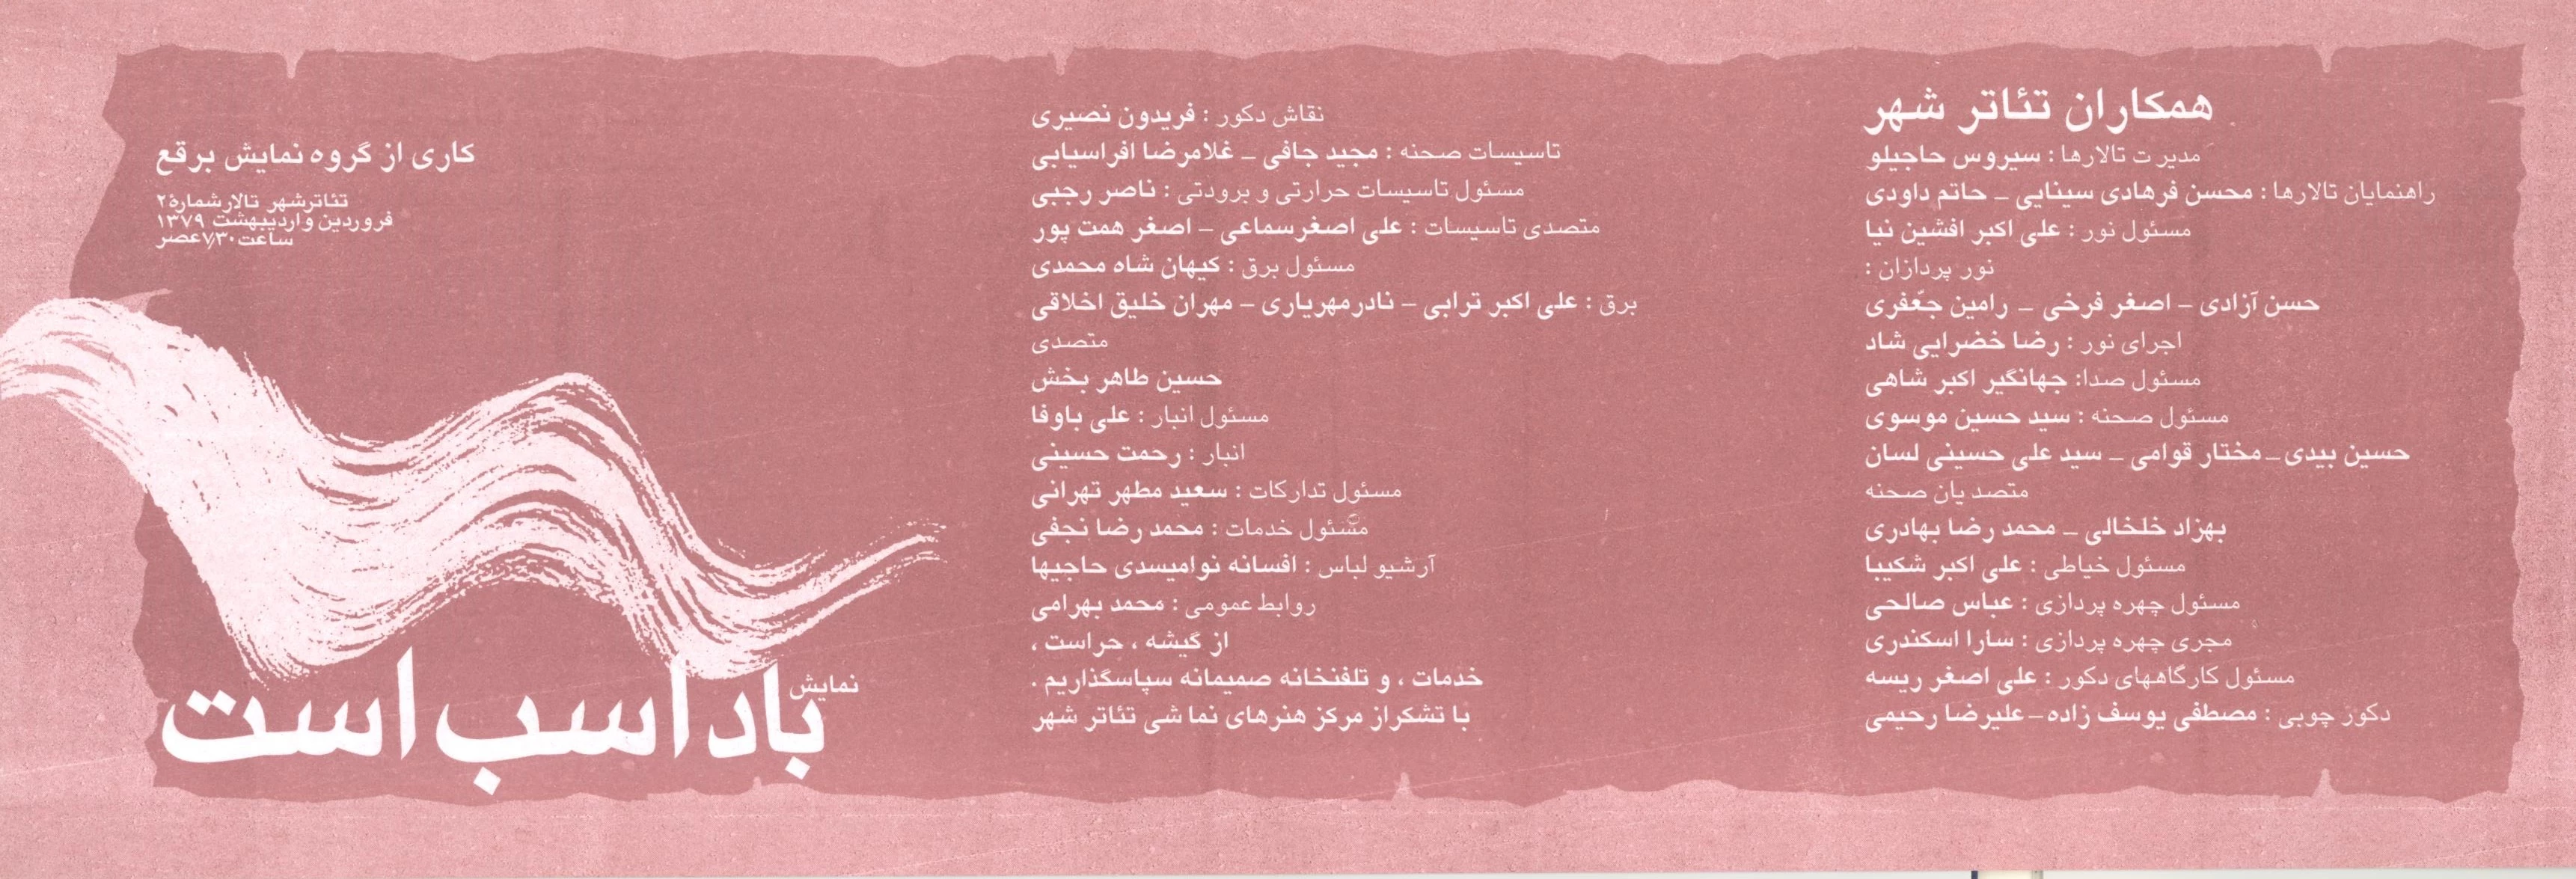 همکاران تئاتر شهر
مدیرت تالارها : سیروس حاجیلو
راهنمایان تالارها : محسن فرهادی سینایی _ حاتم داودی
مسئول نور : علی اکبر افشین نیا
نور پردازان :
حسن آزادی _ اصغر فرخی _ رامین جعفری
اجرای نور : رضا خضرایی شاد
مسئول صدا: جهانگیر اکبر شاهی
مسئول صحنه : سید حسین موسوی
حسین بیدی _ مختار قوامی _ سید علی حسینی لسان
متصدیان صحنه
بهزاد خلخالی _ محمد رضا بهادری
مسئول خیاطی : علی اکبر شکیبا
مسئول چهره پردازی : عباس صالحی
مجری چهره پردازی : سارا اسکندری
مسئول کارگاههای دکور : علی اصغر ریسه
دکور چوبی : مصطفی یوسف زاده _ علیرضا رحیمی
نقاش دکور : فریدون نصیری
تاسیسات صحنه : مجید جافی _ غلامرضا افراسیابی
مسئول تاسیسات حرارتی و برودتی : ناصر رجبی
متصدی تاسیسات : علی اصغرسماعی _ اصغر همت پور
مسئول برق : کیهان شاه محمدی
برق : علی اکبر ترابی _ نادرمهریاری _ مهران خلیق اخلاقی
متصدی
حسین طاهر بخش
مسئول انبار : علی باوفا
انبار : رحمت حسینی
مسئول تدارکات : سعید مطهر تهرانی
مسئول خدمات : محمد رضا نجفی
آرشیو لباس : افسانه نوامیسدی حاجیها
روابط عمومی : محمد بهرامی
از گیشه ، حراست ،
خدمات ، و تلفنخانه صمیمانه سپاسگذاریم .
با تشکراز مرکز هنرهای نما شی تئاتر شهر
کاری از گروه نمایش برقع
تئاترشهر تالارشمارهٔ ۲
فروردین و اردیبهشت ۱۳۷۹
ساعت ۷/۳۰ عصر
نمایش
باد اسب است